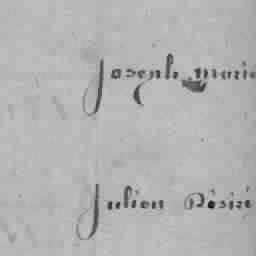 Joseph Marie
Julien Désiré